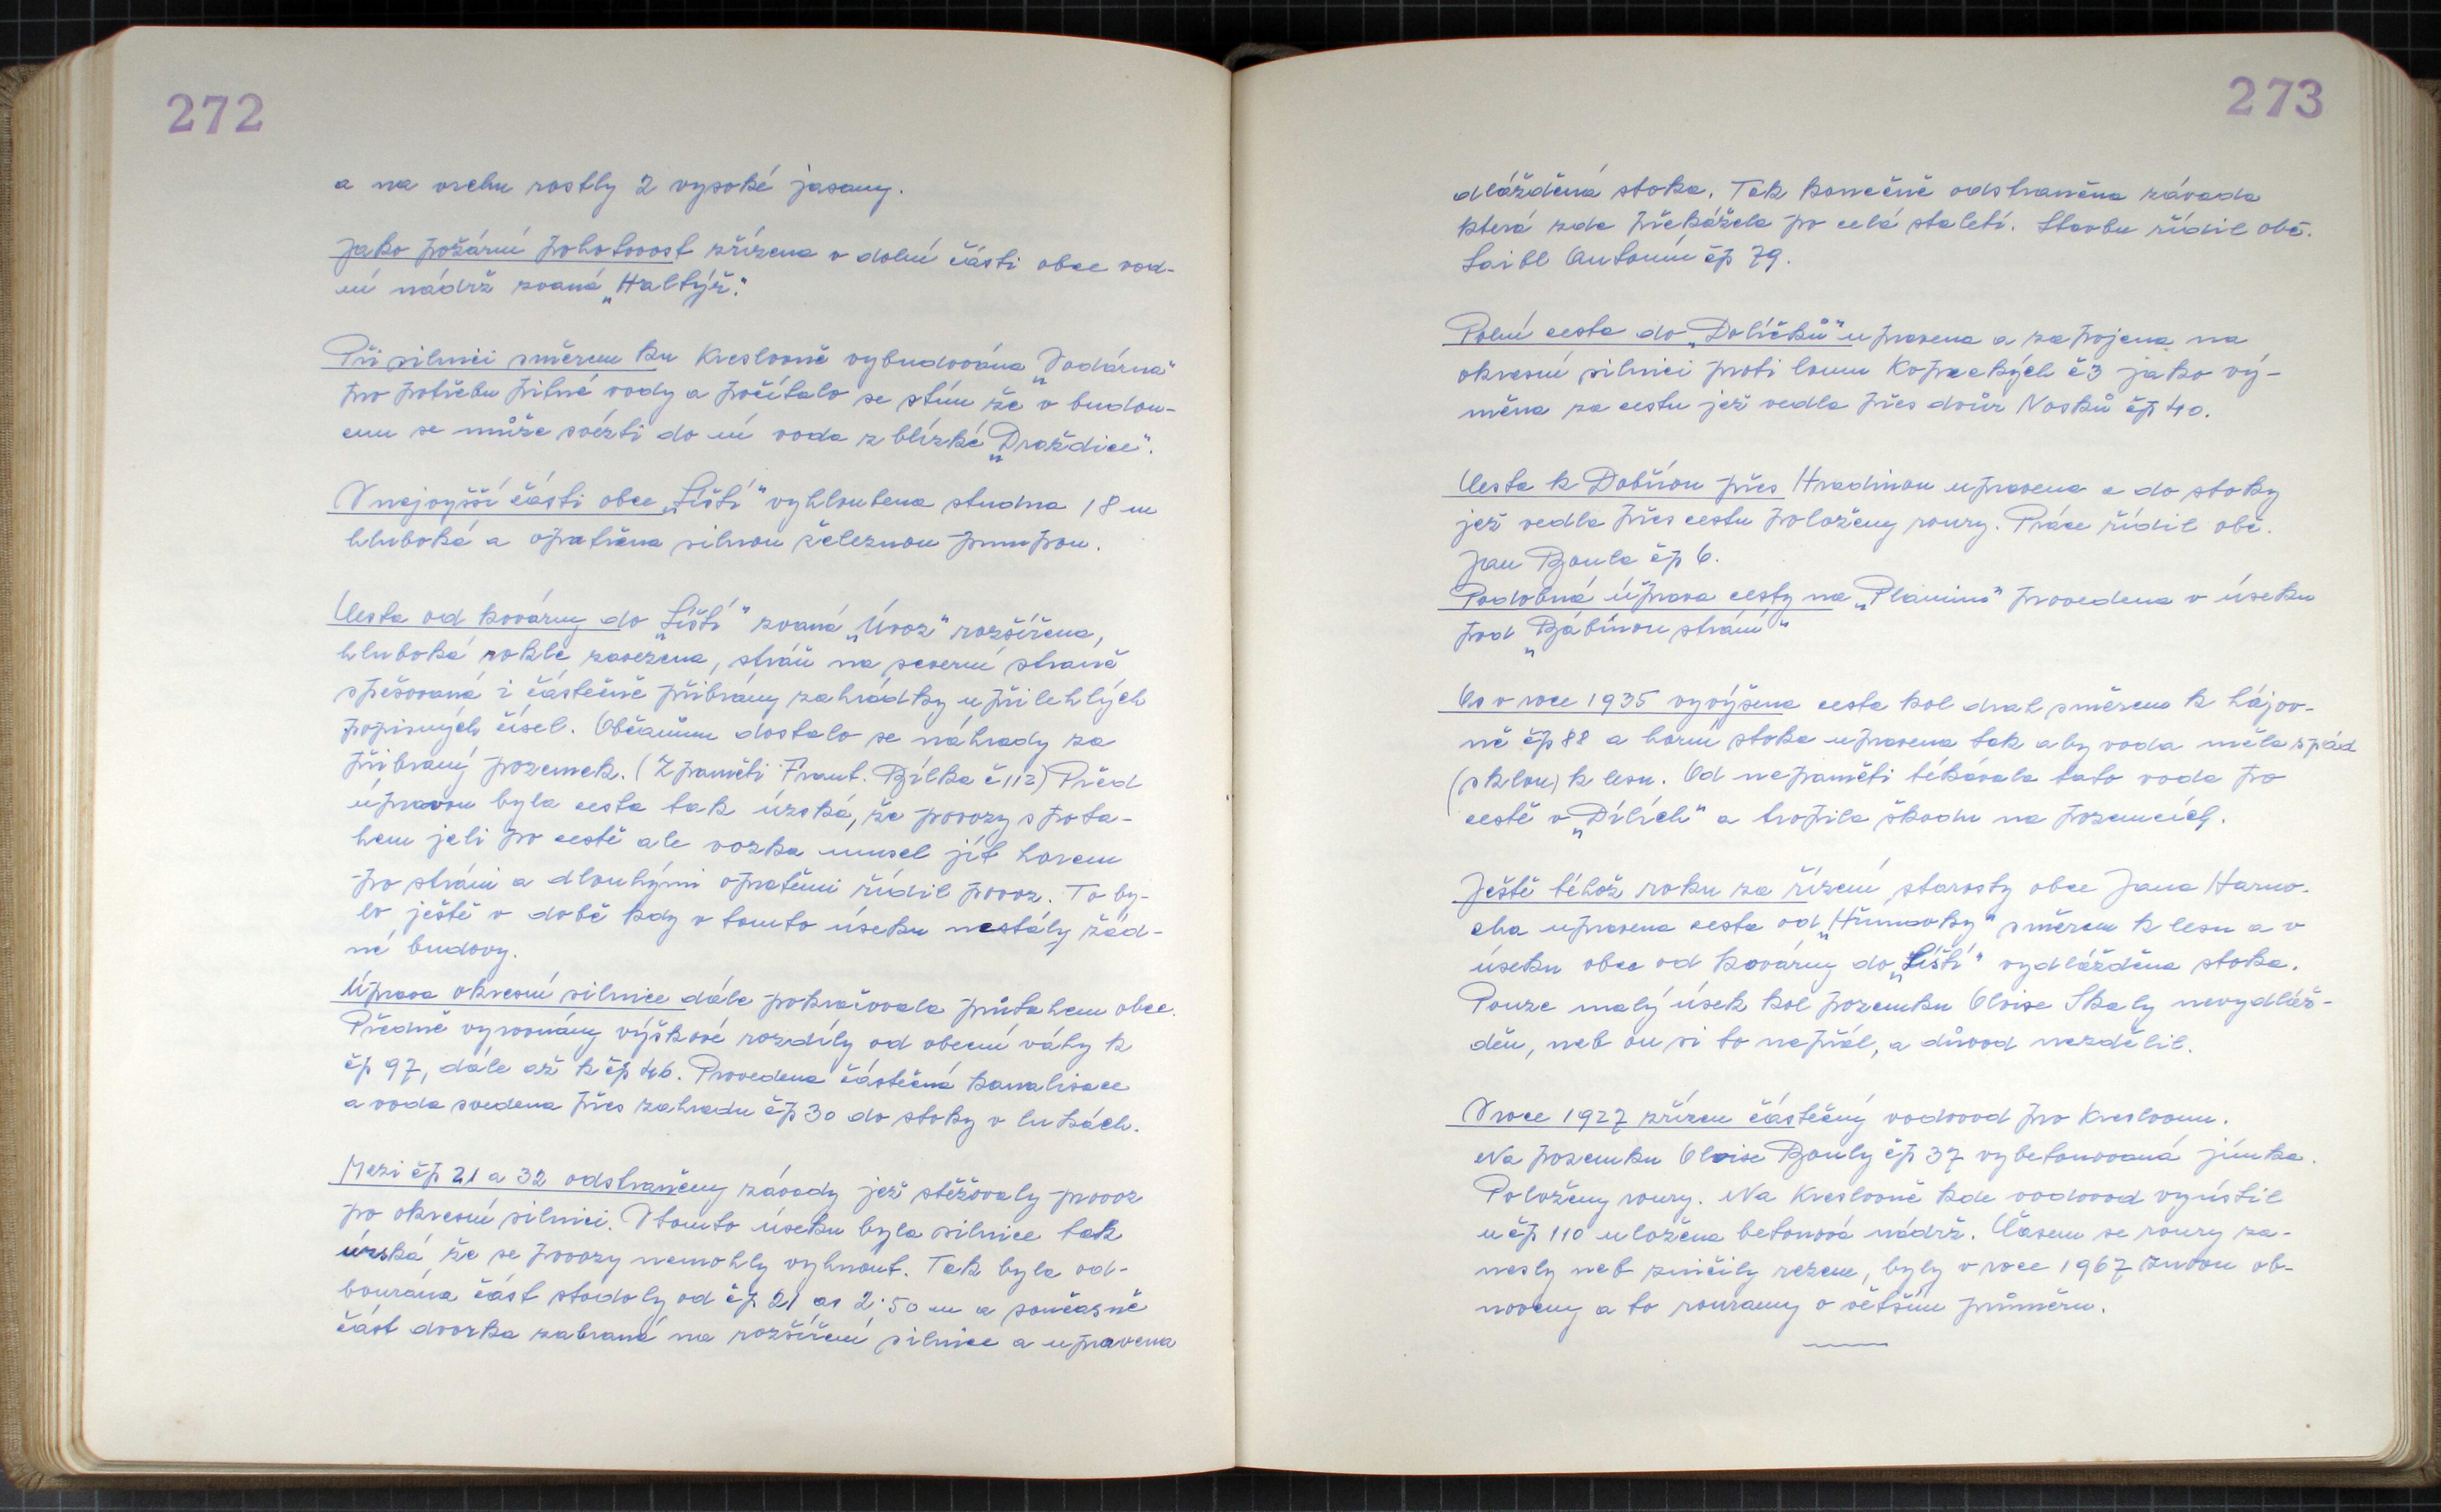 272
a na vrchu rostly 2 vysoké jasany.
Jako požární pohotovost zřízena v dolní části obce vod-
ní nádrž zvaná „Haltýř".
Při silnici směrem ku Kreslovně vybudována „Vodárna"
pro potřebu pitné vody a počítalo se stím že v budou-
cnu se může svézti do ní voda z blízké „Draždice".
V nejvyšší části obce „Líští" vyhloubena studna 18 m
hluboká a opatřena silnou železnou pumpou.
Cesta od kovárny do „Líští" zvaná „Úvoz" rozšířena,
hluboká rokle zavezena, stráň na severní straně
spěšovaná i částečně přibrány zahrádky u přilehlých
popisných čísel. Občanům dostalo se náhrady za
přibraný pozemek. (Z paměti Frant. Bílka č 112) Před
úpravou byla cesta tak úzská, že povozy s pota-
hem jeli po cestě ale vozka musel jít horem
po stráni a dlouhými opratěmi řídil povoz. To by-
lo ještě v době kdy v tomto úseku nestály žád-
né budovy.
Úprava okresní silnice dále pokračovala průtahem obce.
Předně vyrovnány výškové rozdíly od obecní váhy k
čp 97, dále až k čp 46. Provedena částečná kanalisace
a voda svedena přes zahradu čp 30 do stoky v lukách.
Mezi čp 21 a 32 odstraněny závady jež stěžovaly provoz
po okresní silnici. Vtomto úseku byla silnice tak
úzská, že se povozy nemohly vyhnout. Tak byla od-
bourána část stodoly od čp 21 as 2·50 m a současně
část dvorka zabraná na rozšíření silnice a upravena
273
dlážděná stoka. Tak konečně odstraněna závada
která zde překážela po celá staletí. Stavbu řídil obč.
Laibl Antonín čp 79.
Polní cesta do „Dolíčků" upravena a zapojena na
okresní silnici proti lomu Kopeckých č 3 jako vý-
měna za cestu jež vedla přes dvůr Nosků čp 40.
Cesta k Dobřívu přes Hradinou upravena a do stoky
jež vedla přes cestu položeny roury. Práce řídil obč.
Jan Boula čp 6.
Podobná úprava cesty na „Planinu" provedena v úseku
pod „Bábinou strání"
As v roce 1935 vyvýšena cesta kol drah směrem k hájov-
ně čp 88 a horní stoka upravena tak aby voda měla spád
(sklon) k lesu. Od nepaměti tékávala tato voda po
cestě v „Dílích" a tropila škodu na pozemcích.
Ještě téhož roku za řízení starosty obce Jana Harmo-
cha upravena cesta od „Hůrnovky" směrem k lesu a v
úseku obce od kovárny do „Líští" vydlážděna stoka.
Pouze malý úsek kol pozemku Aloise Skaly nevydláž-
děn, neb on si to nepřál, a důvod nezdělil.
V roce 1927 zřízen částečný vodovod pro Kreslovnu.
Na pozemku Aloise Bouly čp 37 vybetonovaná jímka.
Položeny roury. Na Kreslovně kde vodovod vyústil
u čp 110 uložena betonová nádrž. Časem se roury za-
nesly neb zničily rezem, byly v roce 1967 znovu ob-
noveny a to rouramy o větším průměru.